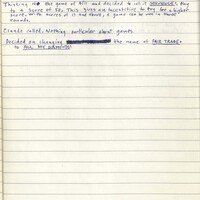 Thinking of the game of Bill and decided to call it
to a score of 50. This gives an incentive to try for a higher
more. With scores of 17 and above, a game can be won in three
rounds.
Claude called. Nothing particular about games.
Decided on changing the name of FAIR TRADE
to ALL MY DIAMONDS